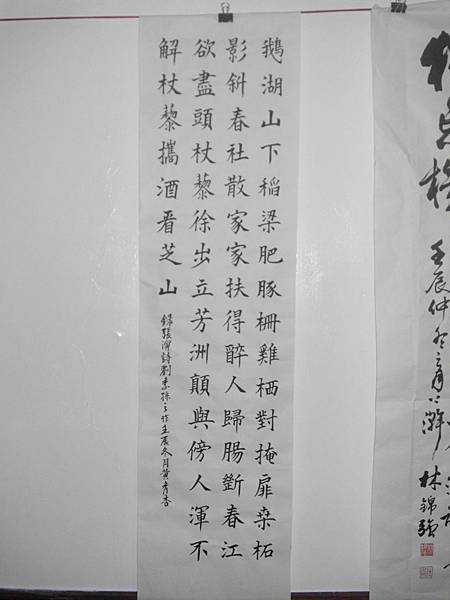 鵝湖山下稻梁肥豚柵雞栖對掩扉桒柘
影斜春社散家家扶得醉人歸腸斷春江
欲盡頭杖藜徐出立芳洲顛與傍人渾不
解杖藜攜酒看芝山
錄張演詩劉季孫之作壬辰冬月黃
壬辰仲冬
林錦強